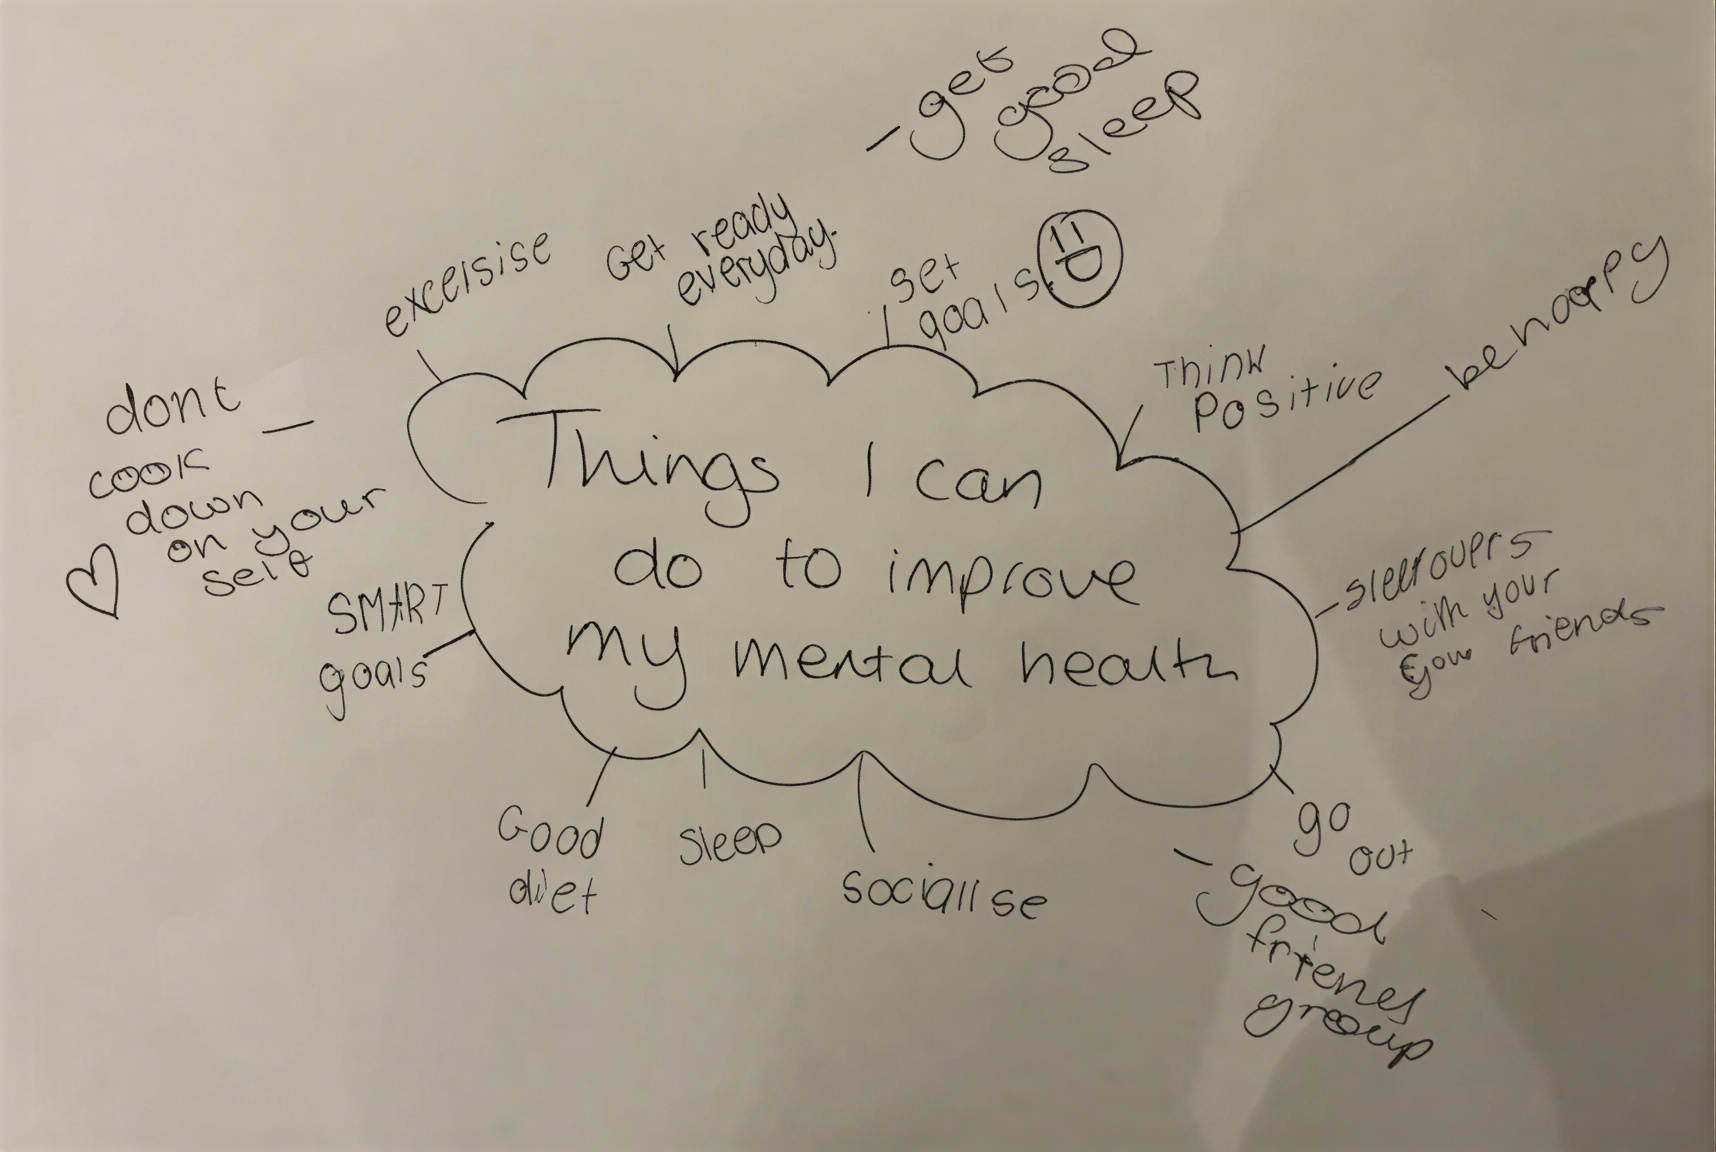 - get
good
sleep
excersise
Get ready
everyday.
set
goals
Think
Positive
be happy
dont -
cook
down
on your
self
Things I can
do to improve
my mental health
SMART
goals
- sleepovers
with your
friends
Good
diet
Sleep
Sociallise
go
out
- good
friend
group